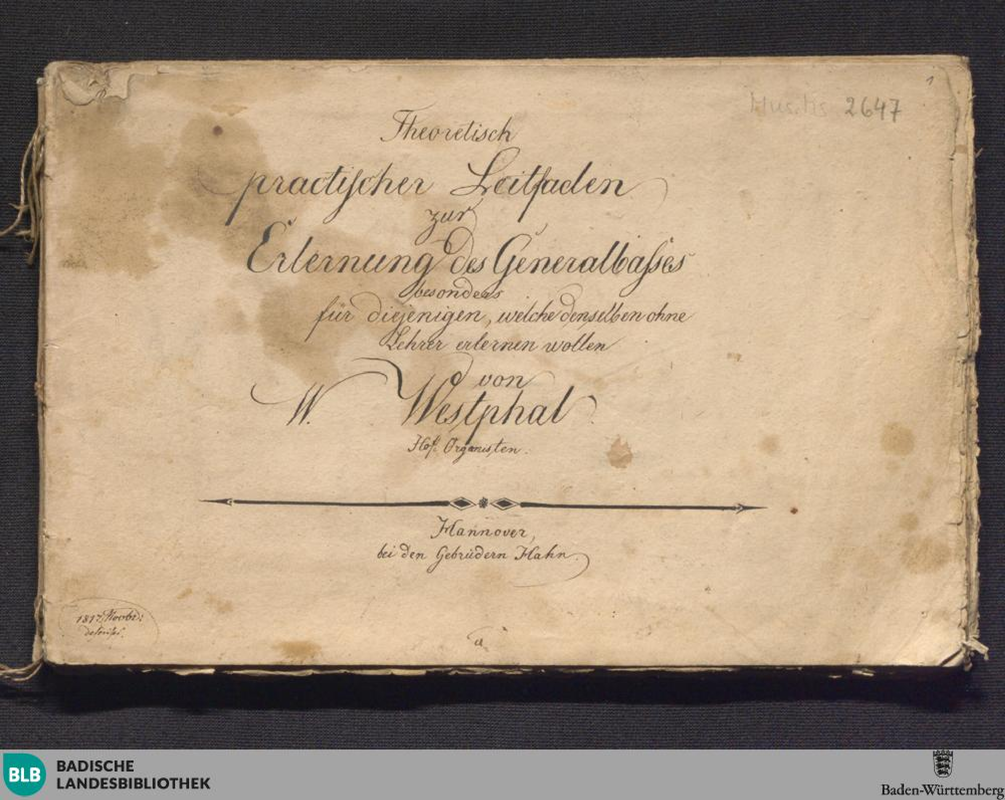 1
Mus. Hs. 2647
Theoretisch
practischer Leitfaden
zur
Erlernung des Generalbasses
besonders
für diejenigen, welche denselben ohne
Lehrer erlernen wollen
von
W. Westphal
Hof. Organisten.
Hannover,
bei den Gebrüdern Hahn.
1817 Novbr:
a
BLB BADISCHE
LANDESBIBLIOTHEK
Baden-Württemberg